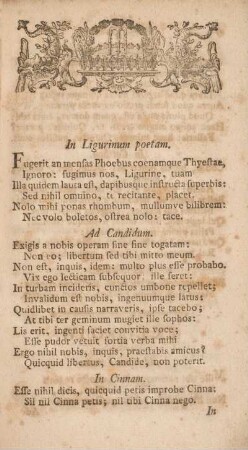 In Ligurinum poetam.
Fugerit an mensas Phoebus coenamque Thyestae,
Ignoro: fugimus nos, Ligurine, tuam
Illa quidem lauta est, dapibusque instructa superbis:
Sed nihil omnino, te recitante, placet.
Nolo mihi ponas rhombum, mullumve bilibrem:
Nec volo boletos, ostrea nolo: tace.
Ad Candidum.
Exigis a nobis operam sine fine togatam:
Non eo; libertum sed tibi mitto meum.
Non est, inquis, idem: multo plus esse probabo.
Vix ego lecticam subsequor: ille feret:
In turbam incideris, cunctos umbone repellet;
Invalidum est nobis, ingenuumque latus:
Quidlibet in causis narraveris, ipse tacebo;
At tibi ter geminum mugiet ille sophos:
Lis erit, ingenti faciet convitia voce;
Esse pudor vetuit fortia verba mihi
Ergo nihil nobis, inquis, praestabis amicus?
Quicquid libertus, Candide, non poterit.
In Cinnam.
Esse nihil dicis, quicquid petis improbe Cinna:
Sil nil Cinna petis; nil tibi Cinna nego.
In